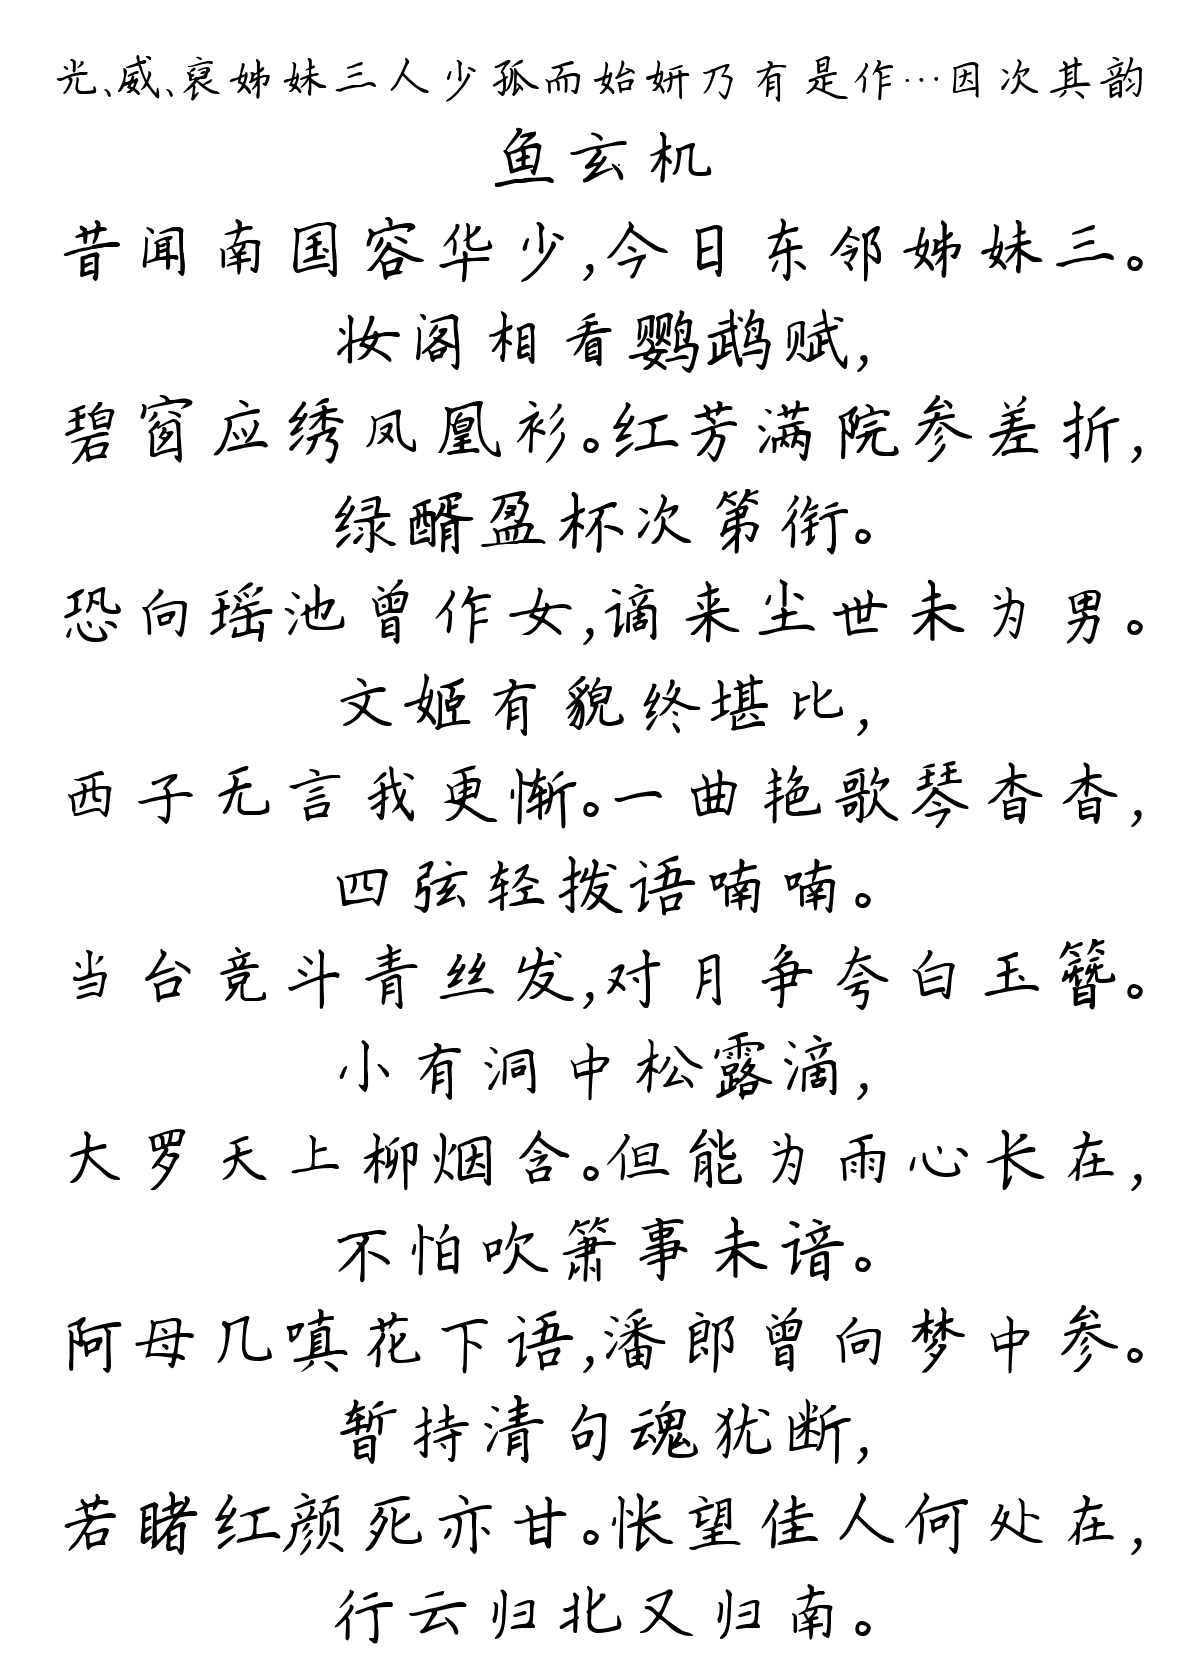 光、威、裒姊妹三人少孤而始妍乃有是作…因次其韵
鱼玄机
昔闻南国容华少,今日东邻姊妹三。
妆阁相看鹦鹉赋,
碧窗应绣凤凰衫。红芳满院参差折,
绿醑盈杯次第衔。
恐向瑶池曾作女,谪来尘世未为男。
文姬有貌终堪比,
西子无言我更惭。一曲艳歌琴杳杳,
四弦轻拨语喃喃。
当台竞斗青丝发,对月争夸白玉簪。
小有洞中松露滴,
大罗天上柳烟含。但能为雨心长在,
不怕吹箫事未谙。
阿母几嗔花下语,潘郎曾向梦中参。
暂持清句魂犹断,
若睹红颜死亦甘。怅望佳人何处在,
行云归北又归南。